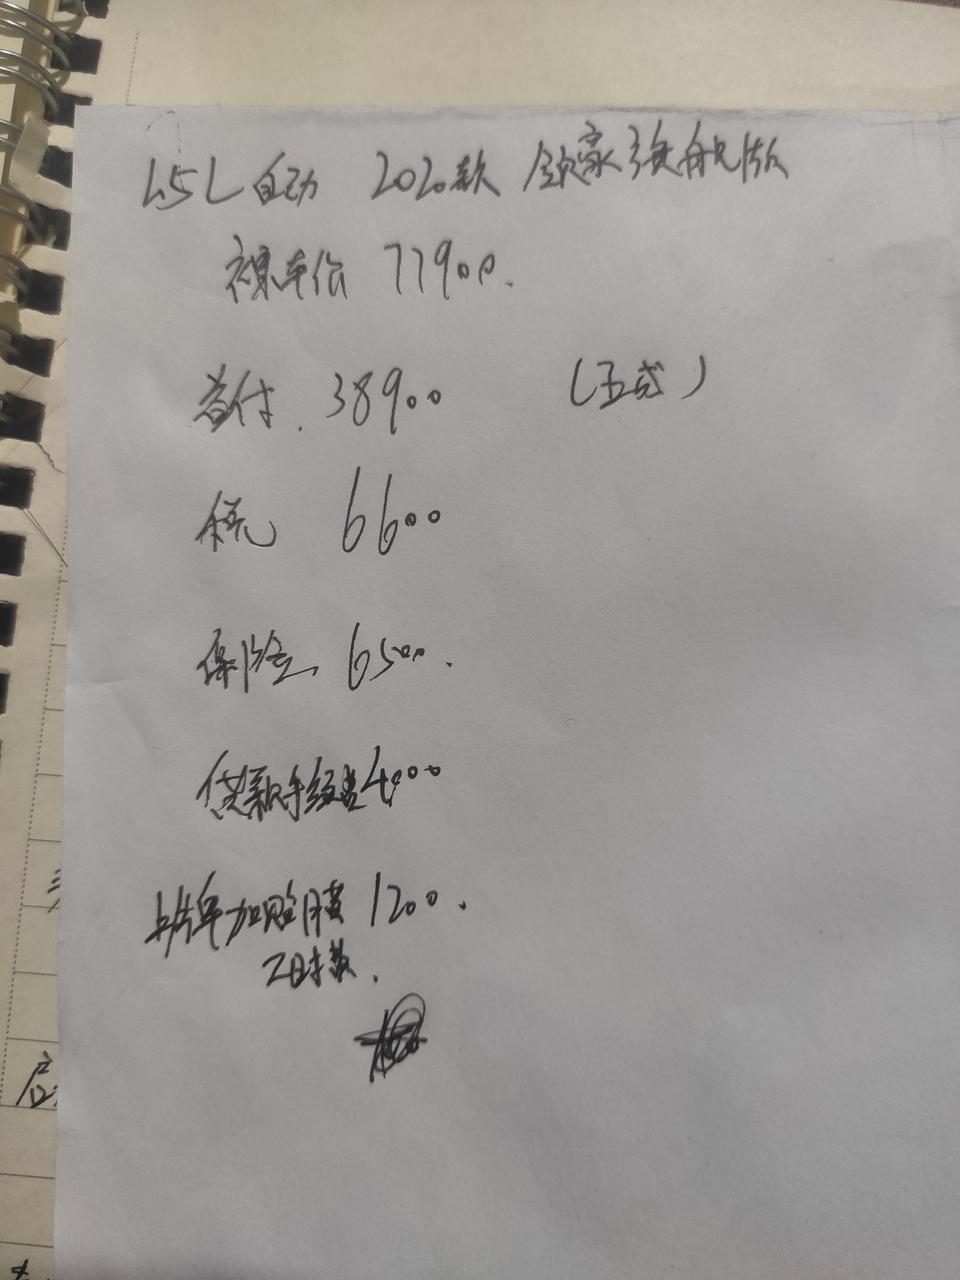 1.5L自动 2020款 领豪旗舰版
裸车价 77900.
首付. 38900 (五成)
税 6600
保险 6500.
贷款手续费4000
上牌加贴膜 1200.